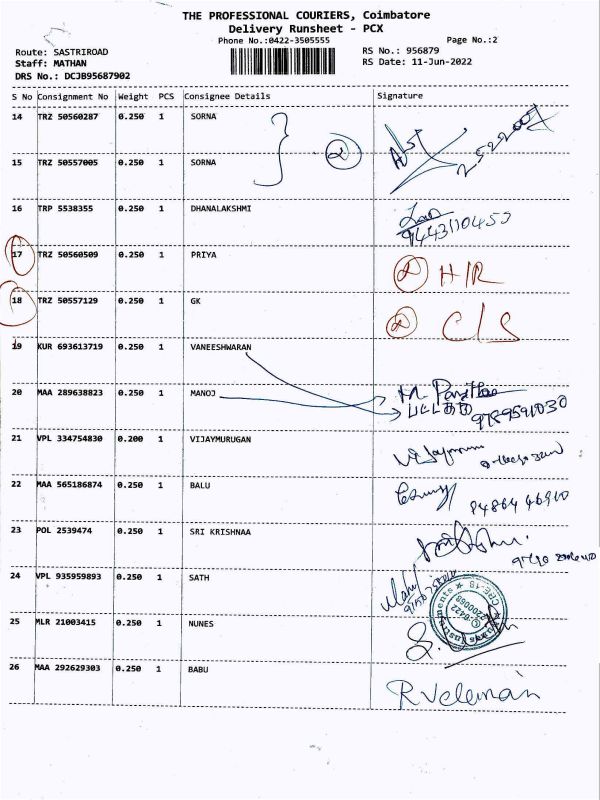 THE PROFESSIONAL COURIERS, Coimbatore
Delivery Runsheet - PCX
Phone No.:0422-3505555 Page No.:2
Route: SASTRIROAD RS No.: 956879
Staff: MATHAN RS Date: 11-Jun-2022
DRS No.: DCJB95687902
S No Consignment No Weight PCS Consignee Details Signature
14 TRZ 50560287 0.250 1 SORNA
2
15 TRZ 50557005 0.250 1 SORNA
16 TRP 5538355 0.250 1 DHANALAKSHMI
9443110453
17 TRZ 50560509 0.250 1 PRIYA 2 H/R
18 TRZ 50557129 0.250 1 GK 2 C/S
19 KUR 693613719 0.250 1 VANEESHWARAN
20 MAA 289638823 0.250 1 MANOJ
9789591030
21 VPL 334754830 0.200 1 VIJAYMURUGAN
22 MAA 565186874 0.250 1 BALU
23 POL 2539474 0.250 1 SRI KRISHNAA
24 VPL 935959893 0.250 1 SATH
25 MLR 21003415 0.250 1 NUNES
26 MAA 292629303 0.250 1 BABU
R Veleman